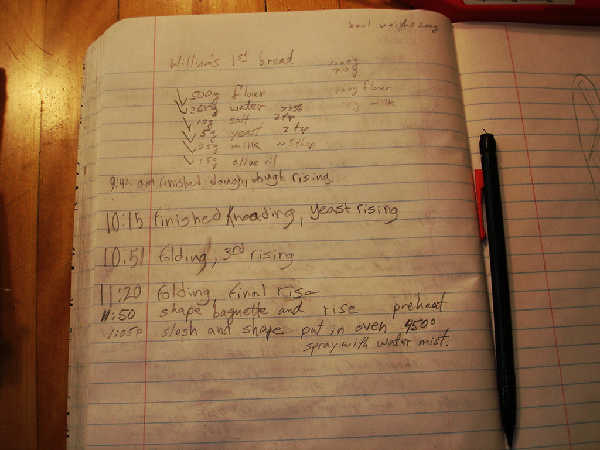 William's 1st bread
500g flour
water
10g salt 2 tsp
5g yeast 2 tsp
25g milk
15g olive oil
finished dough, dough rising
10:15 finished kneading, yeast rising
10:51 folding, 3rd rising
11:20 folding final rise
11:50 shape baguette and rise preheat
slash and shape put in oven 450°
spray with water mist.